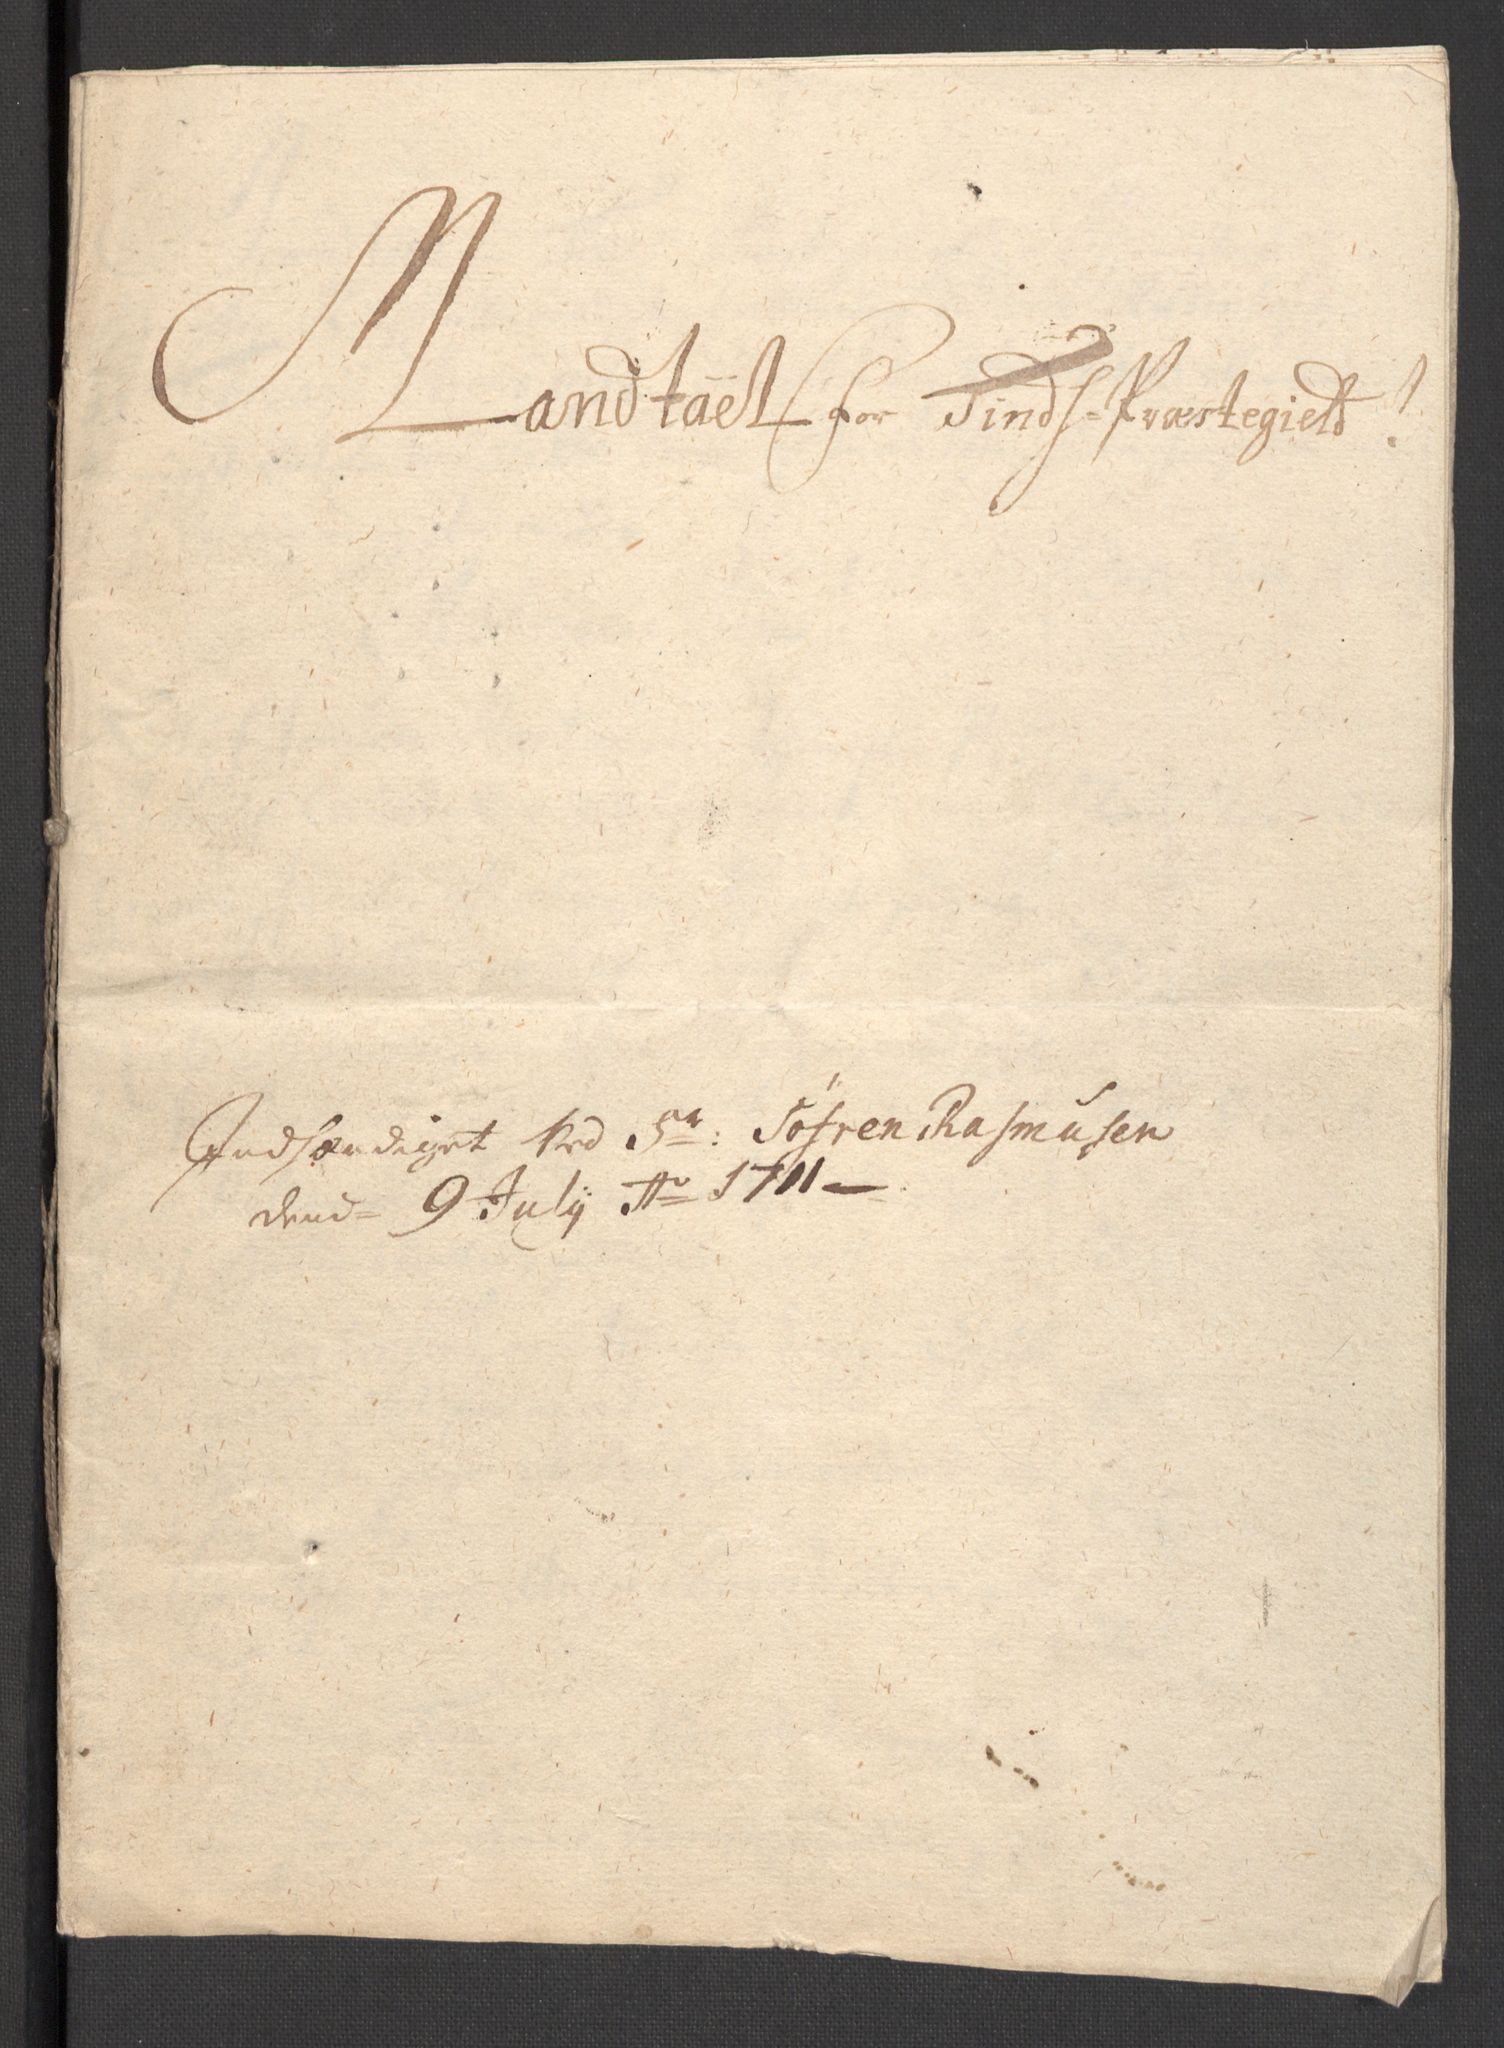 Mandtäel for Tinds=Præstegield!
Indhændiget Ved Sr: Söfren Rasmusen
dend= 9 July Ao 1711—